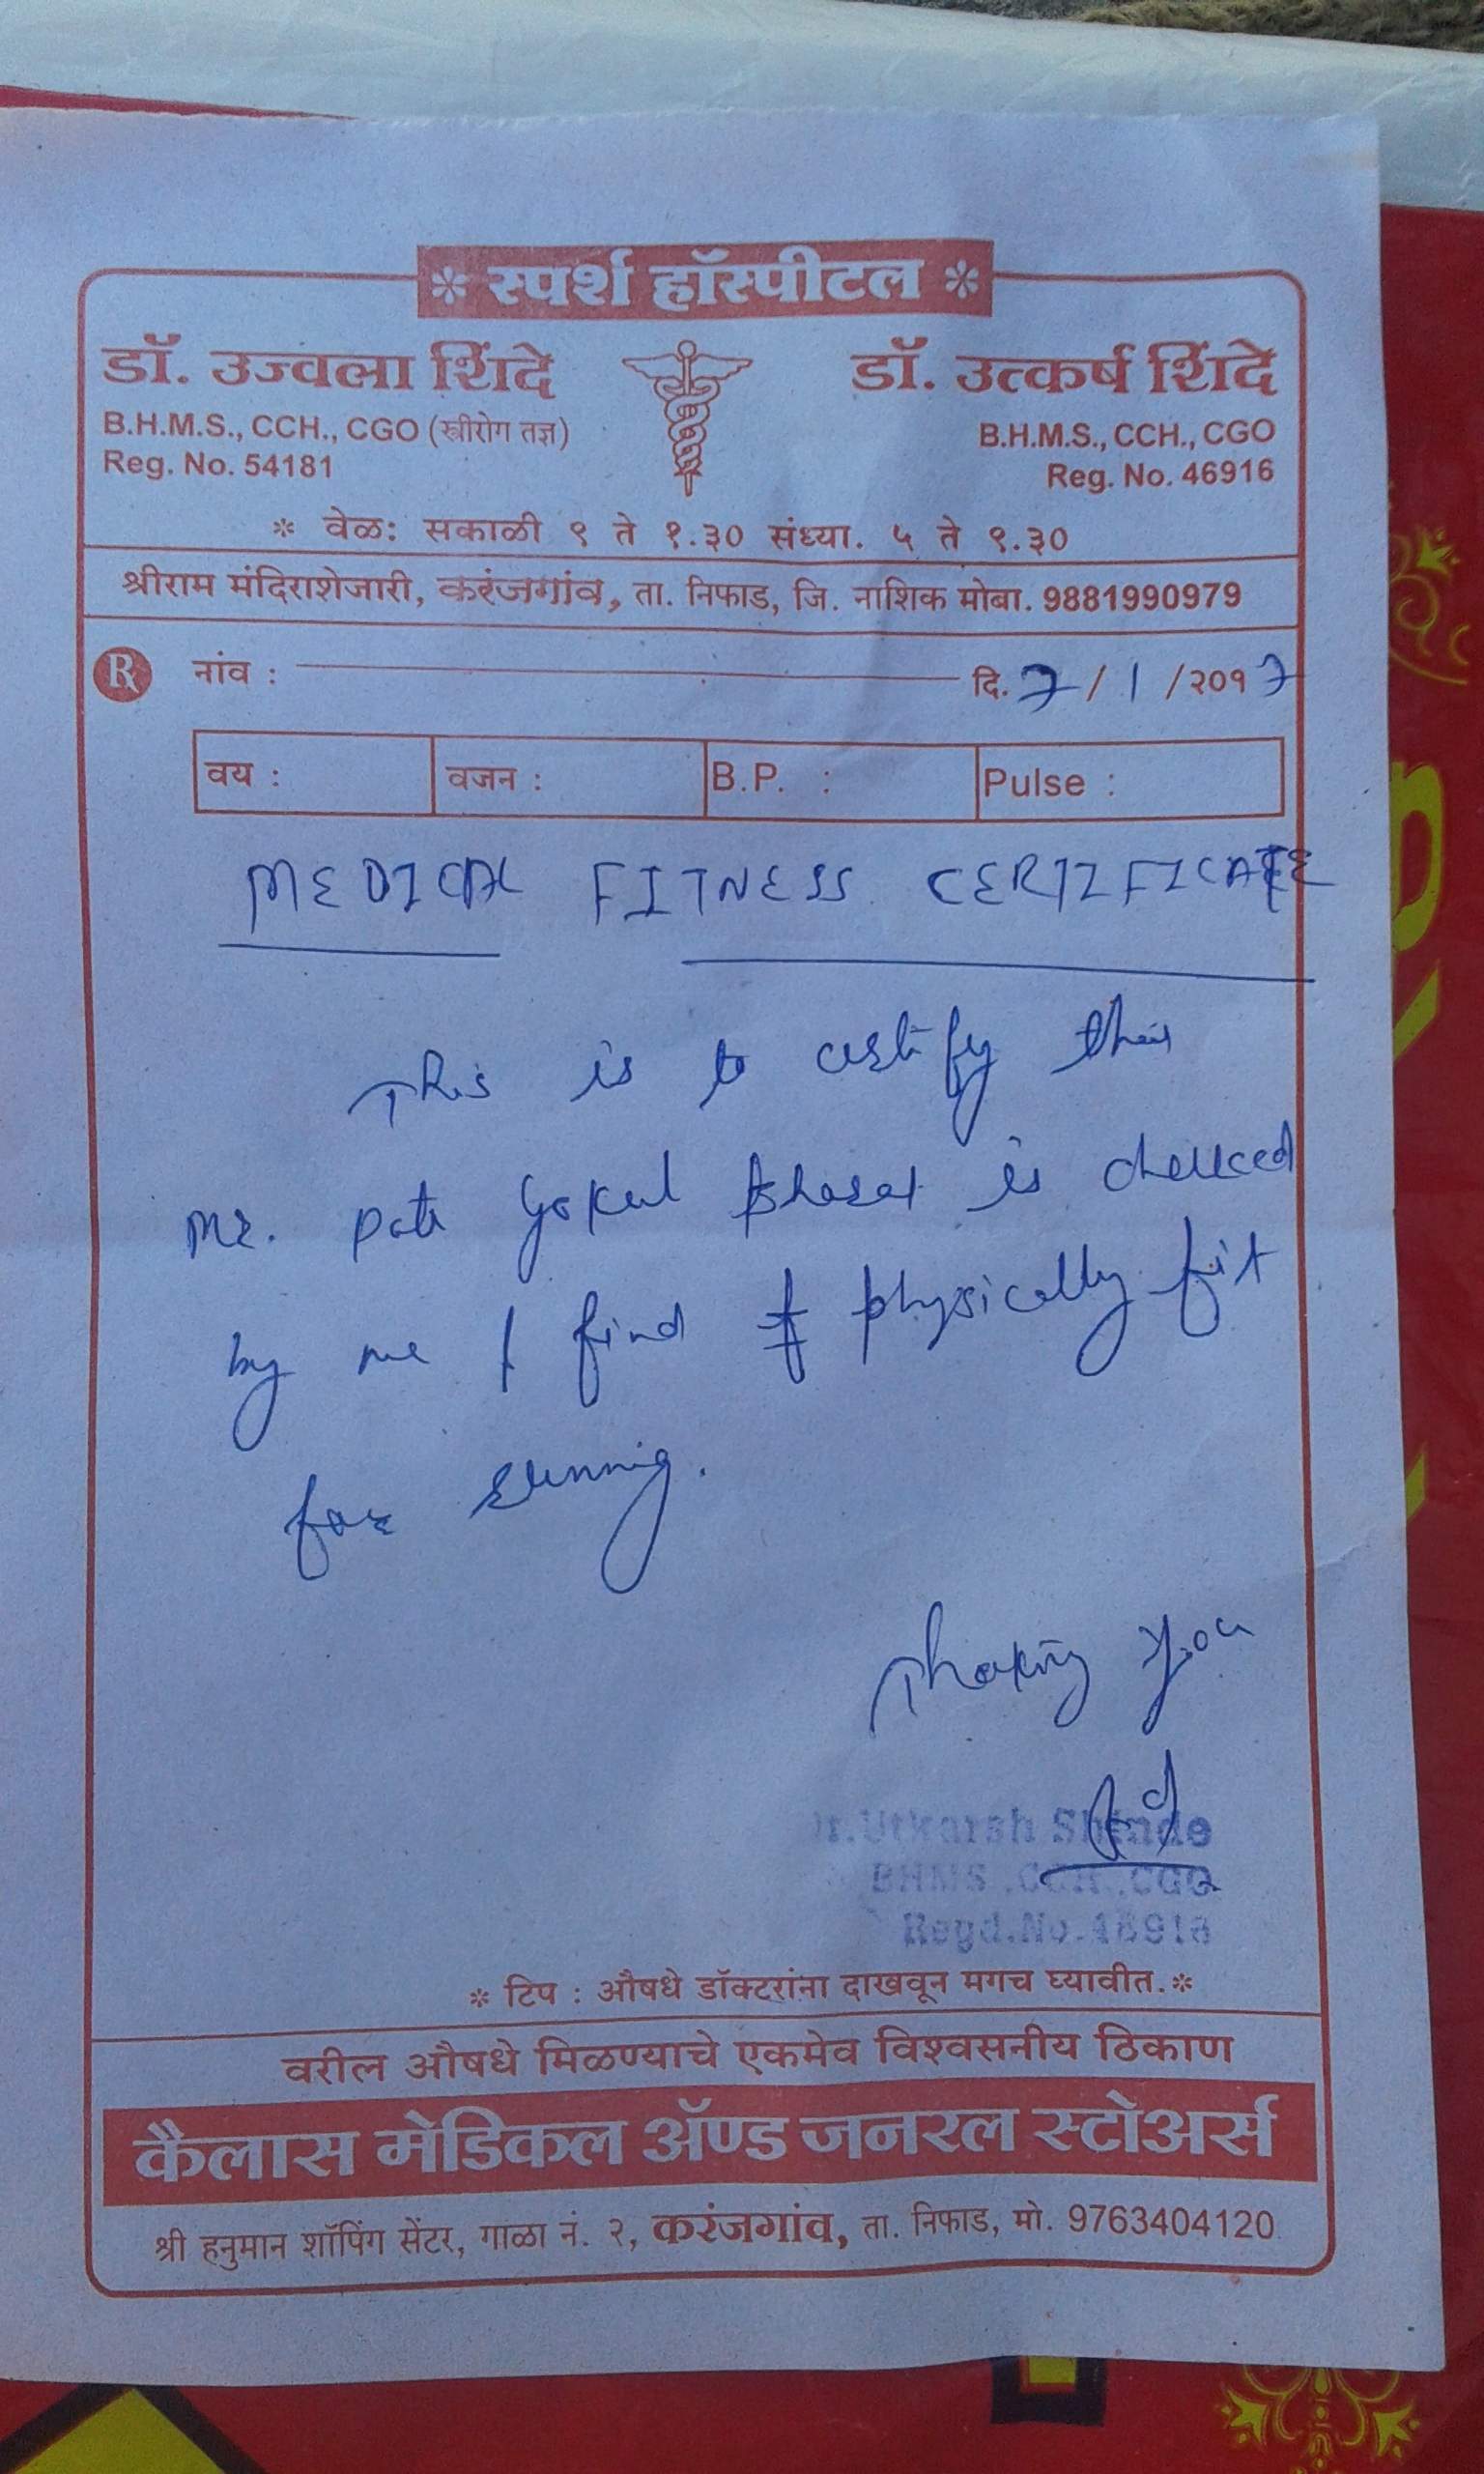 * स्पर्श हॉस्पीटल *
डॉ. उज्वला शिंदे
B.H.M.S., CCH., CGO (स्त्रीरोग तज्ञ)
Reg. No. 54181
डॉ. उत्कर्ष शिंदे
B.H.M.S., CCH., CGO
Reg. No. 46916
* वेळ: सकाळी ९ ते १.३० संध्या. ५ ते ९.३०
श्रीराम मंदिराशेजारी, करंजगांव, ता. निफाड, जि. नाशिक मोबा. 9881990979
R नांव : दि. 7/1/२०१7
वय : वजन : B.P. : Pulse :
MEDICAL FITNESS CERTIFICATE
This is to certify that
Mr. Gokul Bharat is checked
by me I find physically fit
for running.
Thanking you
Dr. Utkarsh Shinde
BHMS .CCH .CGO
Regd.No.46916
* टिप : औषधे डॉक्टरांना दाखवून मगच घ्यावीत. *
वरील औषधे मिळण्याचे एकमेव विश्वसनीय ठिकाण
कैलास मेडिकल ॲण्ड जनरल स्टोअर्स
श्री हनुमान शॉपिंग सेंटर, गाळा नं. २, करंजगांव, ता. निफाड, मो. 9763404120